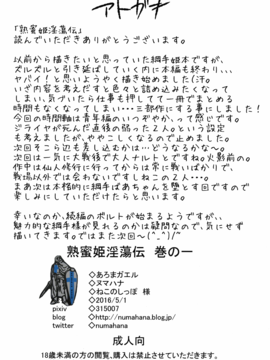 アトガキ
「熟蜜姫淫蕩伝」
読んでいただきありがとうございます。
以前から描きたいと思っていた綱手姫本ですが、
ズルズルと引き延ばしていく内に本編も終わり、、、
ヤバイ！と思いようやく描き始めました(汗。
いざ内容を考えだすと色々と詰め込みたくなって
しまい、気づいたら仕事も押してて一冊でまとめる
時間もなくなってしまい・・・三部作にする事にしました！
今回の時間軸は青年編のいつぞやか、って感じです。
ジライヤが死んだ直後の弱った２人。という設定
も考えましたが、ややこしくなるので止めました。
次回そこら辺も差し込むかは…どうなるかな～。
次回は一気に大戦後で大人ナルトとですね。火影前の。
作中は仙人修行に行ってからは常に戦いばかりで、
戦場以外では会わないですしねこの２人・・・。
まあ次は本格的に綱手ばあちゃんを堕とす回ですので
楽しみにしていただけたらと思います。
幸いなのか、続編のボルトが始まるようですが、、
魅力的な綱手様が見れるのかは疑問なので、気にせず
描いてきます。ではまた次回～(^_^)/~
熟蜜姫淫蕩伝　巻の一
◇あろまガエル
◇ヌマハナ
◇ねこのしっぽ 様
◇2016/5/1
pixiv ◇315007
blog ◇http://numahana.blog.jp/
twitter ◇numahana
成人向
18歳未満の方の閲覧、購入は禁止させていただきます。